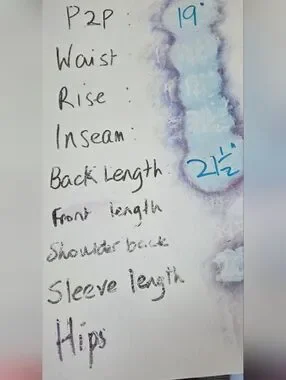 P2P : 19"
Waist
Rise :
Inseam:
Back Length 21½"
Front length
Shoulder back
Sleeve length
Hips